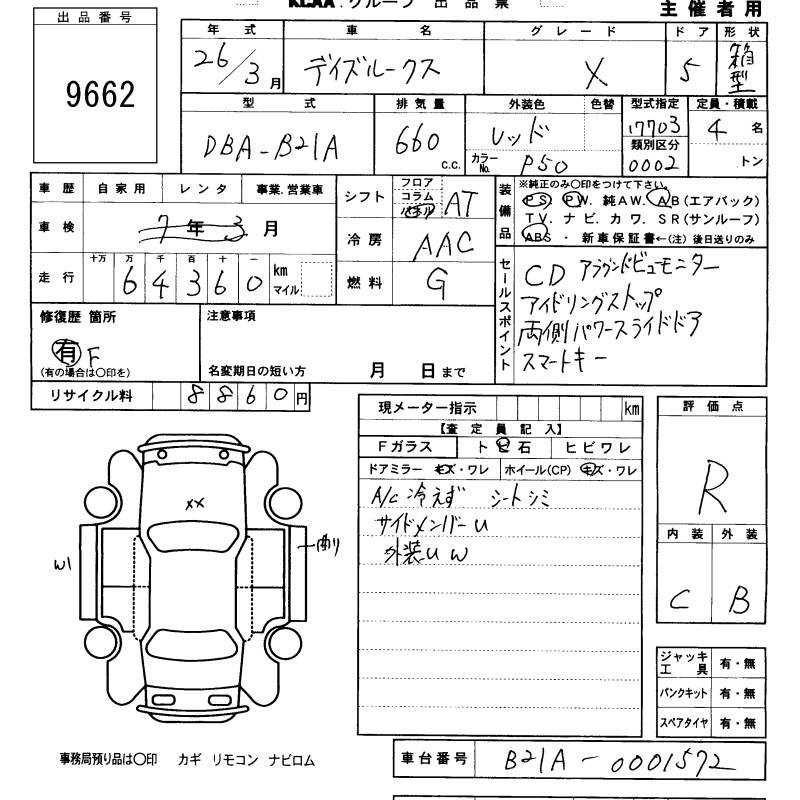 KCAA.グループ 出品票
主催者用
出品番号
9662
年式 車名 グレード ドア 形状
26/3月 デイズルークス X 5 箱型
型式 排気量 外装色 色替 型式指定 定員・積載
DBA-B21A 660 c.c. レッド 17703 4名
類別区分
カラーNo. P50 0002 トン
車歴 自家用 レンタ 事業.営業車
車検 7年3月
走行 十万 万 千 百 十 一
6 4 3 6 0 km マイル
シフト フロア コラム パネル AT
冷房 AAC
燃料 G
装備品
※純正のみ○印をつけて下さい。
PS. PW. 純AW. AB(エアバック)
TV. ナビ. カワ. SR(サンルーフ)
ABS ・ 新車保証書←(注)後日送りのみ
セールスポイント
CD アラウンドビューモニター
アイドリングストップ
両側パワースライドドア
スマートキー
修復歴 箇所
有 F
(有の場合は○印を)
注意事項
名変期日の短い方 月 日まで
リサイクル料 8860円
現メーター指示 km
【査定員記入】
Fガラス トビ石 ヒビワレ
ドアミラー キズ・ワレ ホイール(CP) キズ・ワレ
A/C 冷えず シートシミ
サイドメンバーU
外装U W
評価点
R
内装 外装
C B
XX
W1
曲り
ジャッキ工具 有・無
パンクキット 有・無
スペアタイヤ 有・無
事務局預り品は○印 カギ リモコン ナビロム
車台番号 B21A-0001572